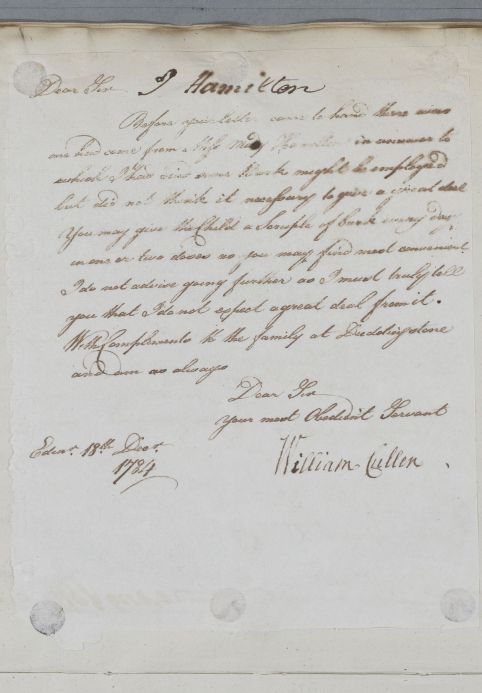 Dear Sir J Hamilton
Before your letter came to hand there was
one had come from a Miss Hamilton in answer to
which I had said some bark might be employed
but did not think it necessary to give a great deal
You may give the Child a Scruple of bark every day
in one or two doses as you may find most convenient.
I do not advise going further as I must truly tell
you that I do not expect a great deal from it.
With Complements to the family at Duddingstone
and am as always
Dear Sir
Your most Obedient Servant
Edinr. 18th Decr.
1784
William Cullen